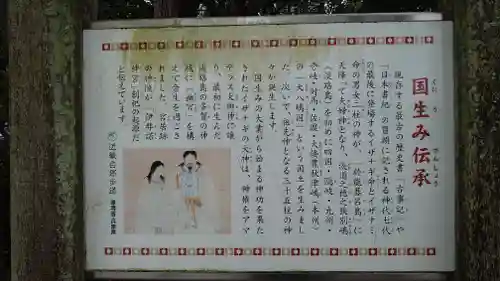 国生み伝承
くにう
でんしょう
現存する最古の歴史書「古事記」や
「日本書紀」の冒頭に記される神代七代
の最後に登場するイザナギ命とイザナミ
命の男女二柱の神が、「於能碁呂島」に
天降って夫婦神となり、淡道之穂之狭別嶋
(淡路島)を初めに四国・隠岐・九州・
壱岐・対馬・佐渡・大倭豊秋津嶋(本州)
の「大八嶋国」という国土を生みまし
た。次いで、様々な神となる三十五柱の神
々が誕生します。
国生みの大業から始まる神功を果た
されたイザナギの大神は、神権をアマ
テラス大御神に譲
り、最初に生んだ
淡路島の多賀の神
域に「幽宮」を構
えて余生を過ごさ
れました。宮居跡
の神陵が「伊弉諾
神宮」創祀の起源だ
と伝えています。
近畿郵便局